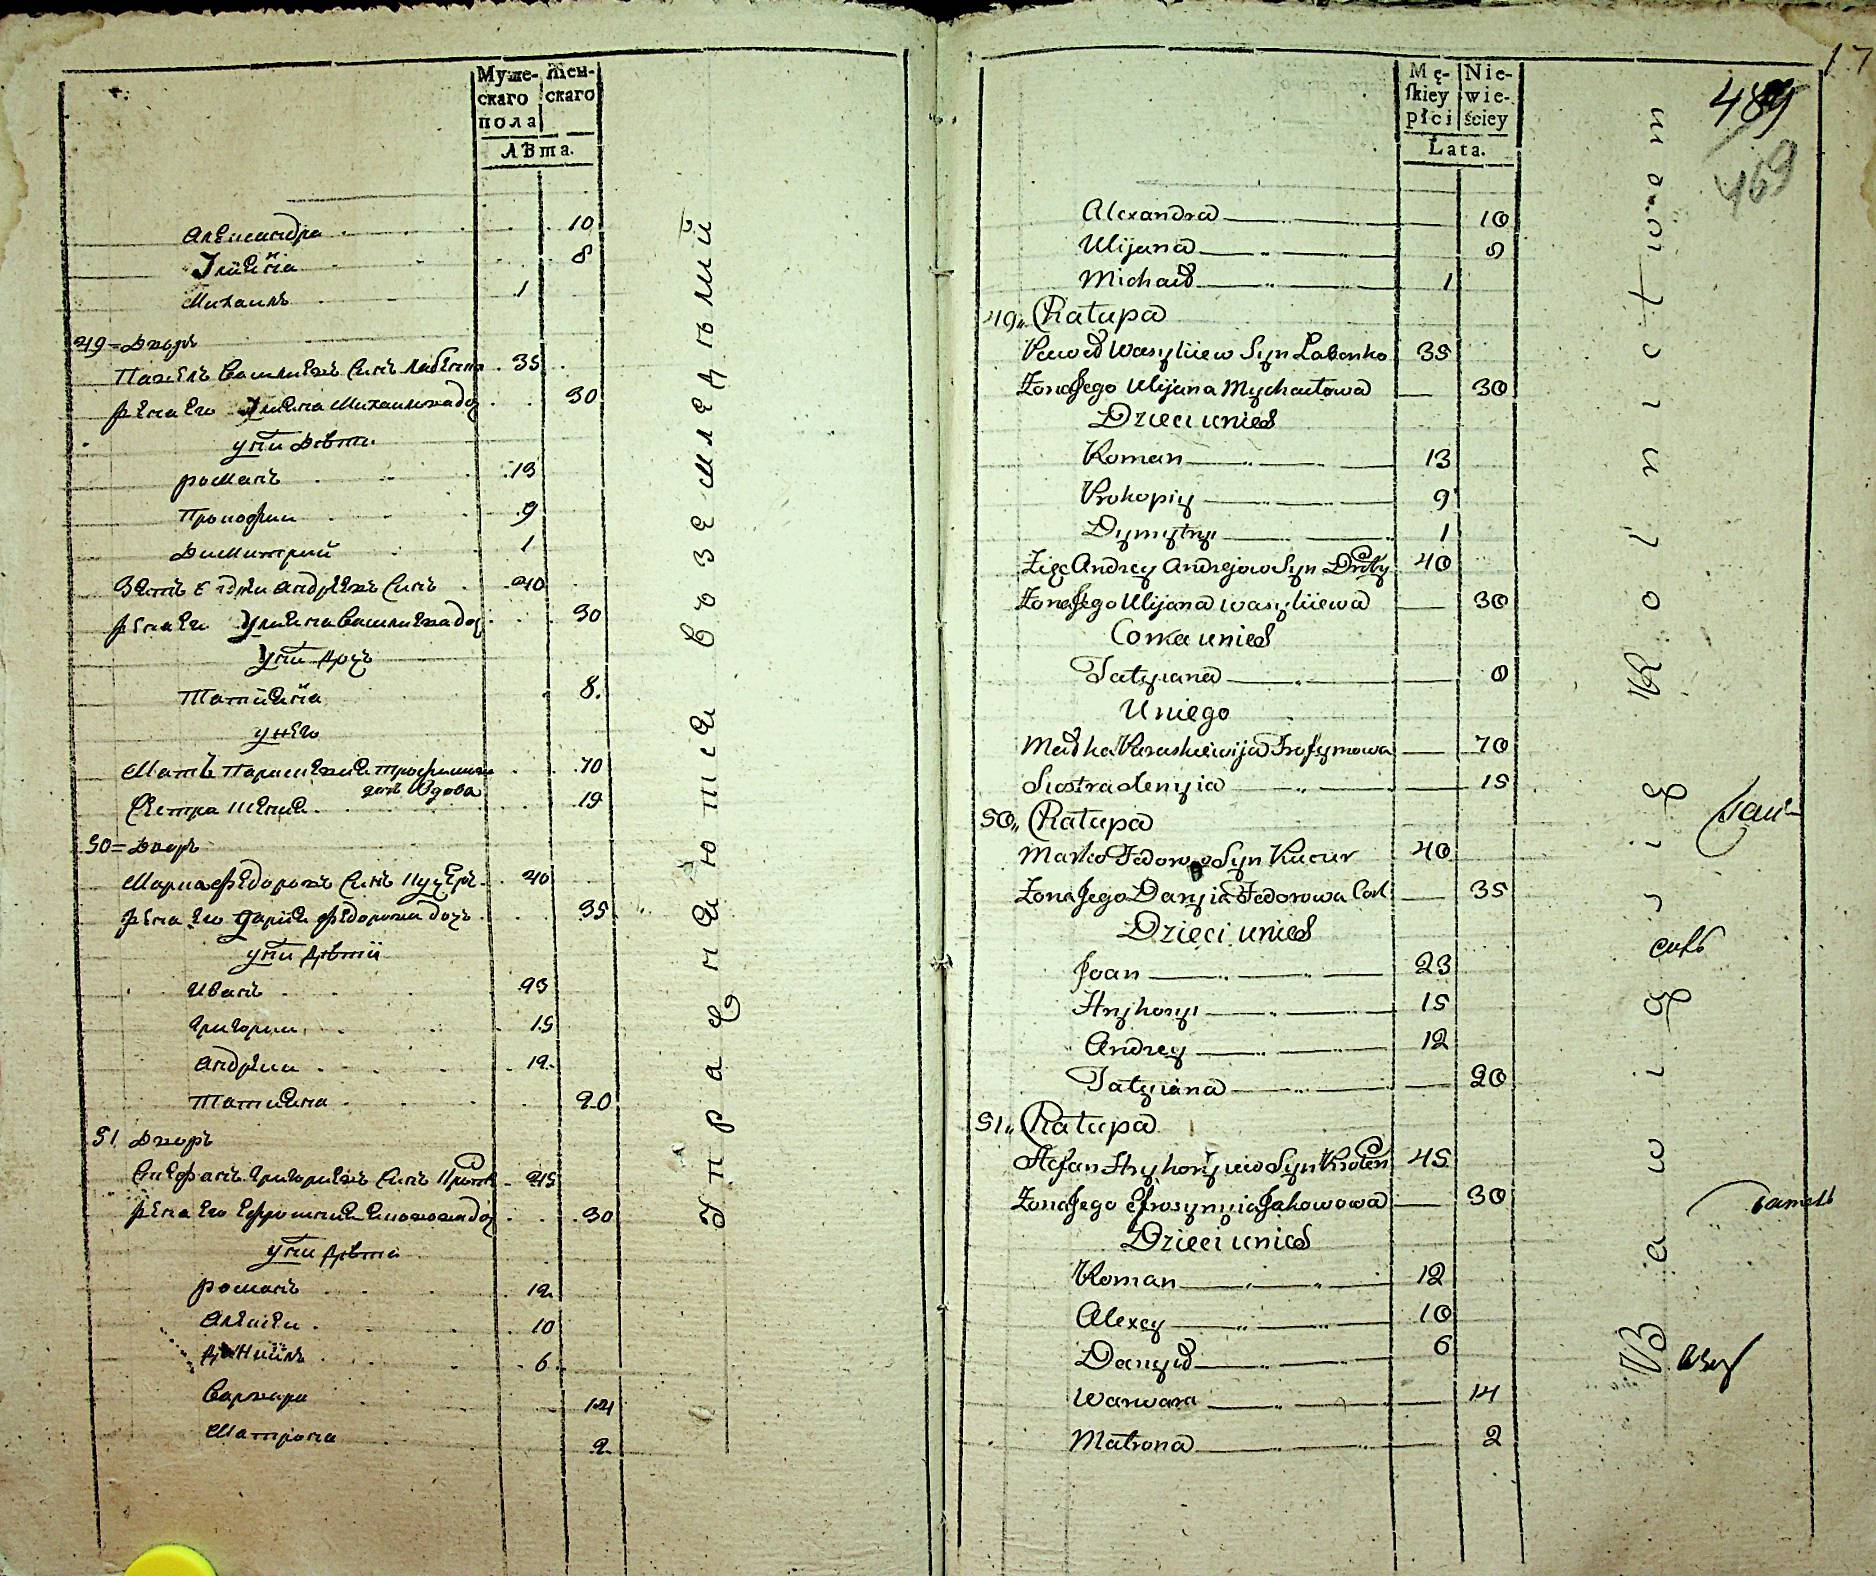 Муже-
скаго
пола
Жен-
скаго
Лѣта.
Александра 10
Улиана 8
Михаилъ 1
49 = Дворъ
Павелъ Василиевъ Синъ Лабенко 35
Жена Его Улиана Михаиловадоч 30
у них Дѣти
Романъ 13
Прокофии 9
Димитрий 1
Зять Андреи Андреевъ Синъ 40
Жена Его Улиана Василиевадоч 30
У них дочъ
Татияна 8.
у него
Мать Параскевия Трофимова 70
дочь Вдова
Сестра Ксения 19
50 = Дворъ
Марко Федоровъ Синъ Куцуръ 40
Жена его Дария Федорова дочъ 35
у них дѣти
Иванъ 23
Григории 15
Андреи 12
Татияна 20
51 Дворъ
Стефанъ Григориевъ Синъ 45
Жена Его Ефросиния дочь 30
у них дѣти
Романъ 12
Алексеи 10
Даниилъ 6
Варвара 14
Матрона 2
Упражнаются въ земледѣлий
17
489
469
Mę-
skiey
płci
Nie-
wie-
ściey
Lata.
Alexandra 10
Ulijana 8
Michał 1
49 Chałupa
Paweł Wasyliiew Syn Labenko 35
Żona Jego Ulijana Mychaułowa 30
Dzieci unich
Roman 13
Prokopiy 9
Dymytryi 1
Zięć Andrey Andrejow Syn 40
Żona Jego Ulijana Wasyliiewa 30
Corka unich
Tatyiana 8
Uniego
Matka Paraskiewija Trofymowa 70
Siostra Xenyia 15
50 Chałupa
Marko Fedorow Syn Kucur 40
Żona Jego Daryia Fedorowa Cor 35
Dzieci unich
Joan 23
Hryhoryi 15
Andrey 12
Tatyiana 20
51 Chałupa
Stefan Hryhoryiew Syn 45
Żona Jego Efrosynyia Jakowowa 30
Dzieci unich
Roman 12
Alexey 10
Danyił 6
Warwara 14
Matrona 2
Bawią się Rolnictwem